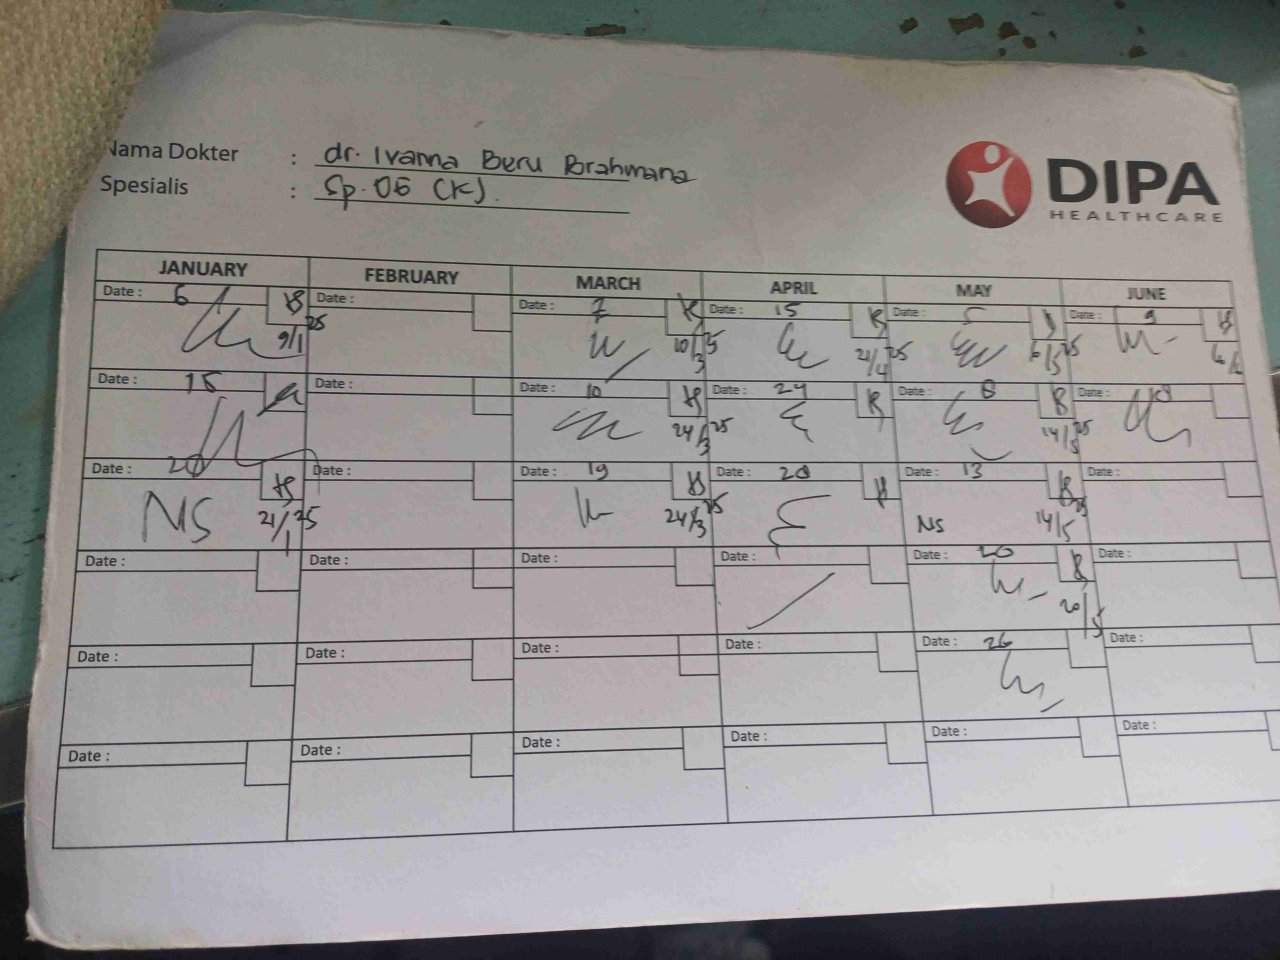 Nama Dokter : dr. Ivanna Beru Brahmana
Spesialis : Sp. OG (K).
DIPA
HEALTHCARE
JANUARY FEBRUARY MARCH APRIL MAY JUNE
Date : 6 Date : Date : 7 Date : 15 Date : 5 Date : 3
9/1 25 10/3 25 21/4 25 6/5 25
Date : 15 Date : Date : 10 Date : 24 Date : 8 Date :
24/3 25 14/5 25
Date : 20 Date : Date : 19 Date : 28 Date : 13 Date :
NS 21/1 25 24/3 25 NS 14/5 25
Date : Date : Date : Date : Date : 20 Date :
20/5
Date : Date : Date : Date : Date : 26 Date :
Date : Date : Date : Date : Date : Date :